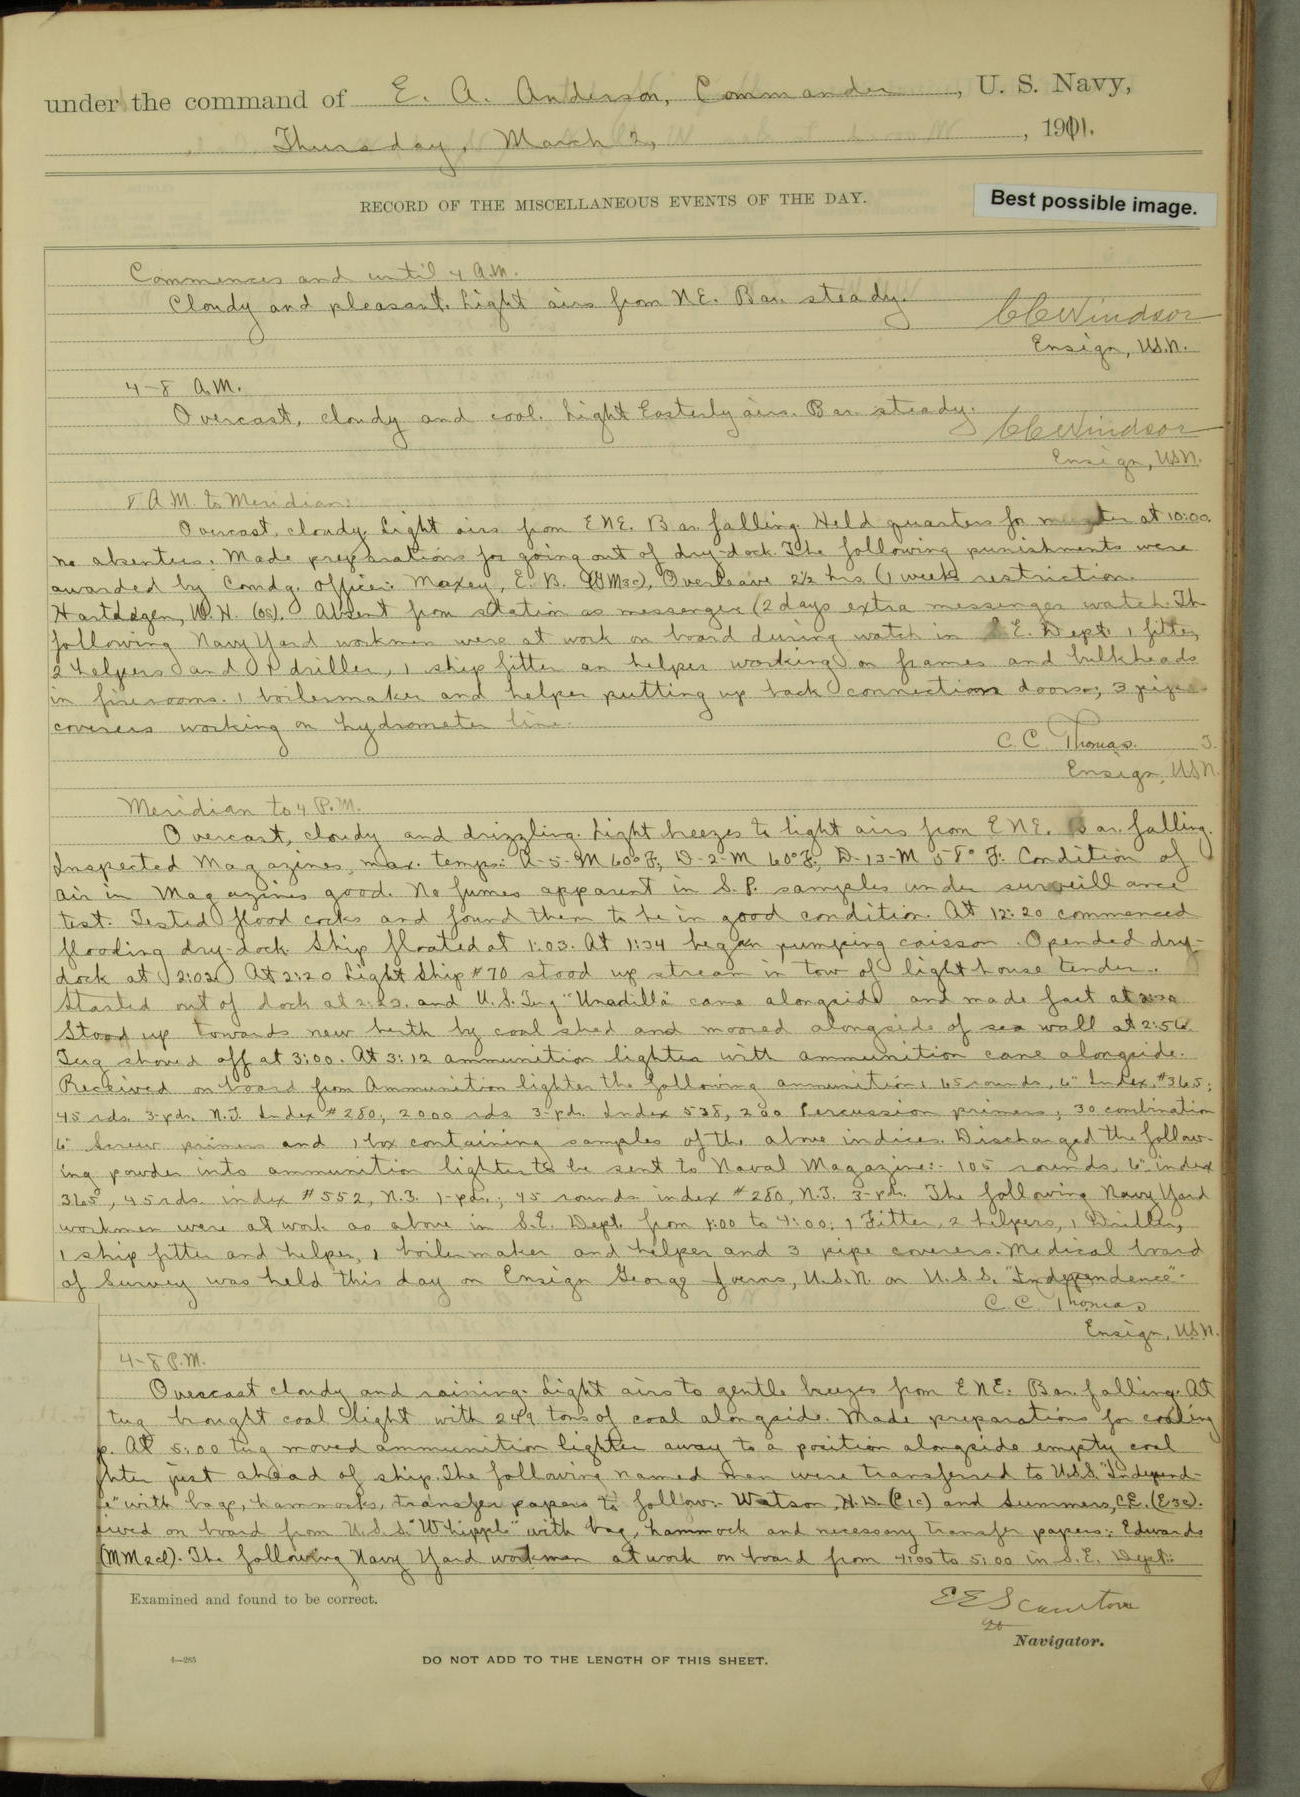 under the command of E. A. Anderson, Commander, U. S. Navy,
Thursday, March 2, 1911.
RECORD OF THE MISCELLANEOUS EVENTS OF THE DAY.
Best possible image.
Commences and until 4 A.M.
Cloudy and pleasant. Light airs from NE. Bar. steady.
CCWindsor
Ensign, U.S.N.
4-8 A.M.
Overcast, cloudy and cool. Light Easterly airs. Bar. steady.
CCWindsor
Ensign, USN.
8 A.M. to Meridian:
Overcast, cloudy. Light airs from ENE. Bar. falling. Held quarters for muster at 10:00.
no absentees. Made preparations for going out of dry-dock. The following punishments were
awarded by Comdg. Officer: Maxey, E. B. Overleave 2½ hrs (1 week restriction.
W. H. (OS). Absent from station as messenger (2 days extra messenger watch. The
following Navy Yard workmen were at work on board during watch in S. E. Dept. 1 fitter,
2 helpers and 1 driller, 1 ship fitter an helper working on frames and bulkheads
in firerooms. 1 boilermaker and helper putting up back connection doors; 3 pipe
coverers working on hydrometer line.
C. C. Thomas.
Ensign, USN.
Meridian to 4 P.M.
Overcast, cloudy and drizzling. Light breezes to light airs from ENE. Bar. falling.
Inspected Magazines, max. temps: A-5-M 60°F; D-2-M 60°F; D-13-M 58° F. Condition of
air in Magazines good. No fumes apparent in S. P. samples under surveillance
test. Tested flood cocks and found them to be in good condition. At 12:20 commenced
flooding dry-dock. Ship floated at 1:03. At 1:34 began pumping caisson. Opended dry-
dock at 2:02. At 2:20 Light Ship #70 stood up stream in tow of light house tender.
Started out of dock at and U.S. Tug "Unadilla" came alongside and made fast at
Stood up towards new berth by coal shed and moored alongside of sea wall at 2:56.
Tug shoved off at 3:00. At 3:12 ammunition lighter with ammunition came alongside.
Received on board from Ammunition lighter the following ammunition; 65 rounds, 6" Index, #365;
45 rds. 3-pdr. N.T. Index #280, 2000 rds 3-pdr. Index 538, 200 Percussion primers, 30 combination
6" Screw primers and 1 box containing samples of the above indices. Discharged the follow-
ing powder into ammunition lighter to be sent to Naval Magazine:- 105 rounds, 6" index
365, 45 rds. index #552, N.T. 1-pdr.; 45 rounds index #280 N.T. 3-pdr. The following Navy Yard
workmen were at work as above in S.E. Dept. from 1:00 to 4:00; 1 Fitter, 2 helpers, 1 Driller,
1 ship fitter and helper, 1 boilermaker and helper and 3 pipe coverers. Medical board
of Survey was held this day on Ensign George Joerns, U.S.N. on U.S.S. "Independence".
C. C. Thomas
Ensign, USN.
4-8 P.M.
Overcast cloudy and raining. Light airs to gentle breezes from ENE. Bar. falling. At
tug brought coal light with 249 tons of coal alongside. Made preparations for coaling
p. At 5:00 tug moved ammunition lighter away to a position alongside empty coal
hter just ahead of ship. The following named men were transferred to U.S.S. "Independ-
e" with bags, hammocks, transfer papers to follow:- Watson, H. D. (E1c) and Summers, C.E. (E3c).
ived on board from U.S.S. "Whipple" with bag, hammock and necessary transfer papers: Edwards
(MM2cl). The following Navy Yard workmen at work on board from 4:00 to 5:00 in S. E. Dept.:
Examined and found to be correct.
E E Scranton
Navigator.
4-285
DO NOT ADD TO THE LENGTH OF THIS SHEET.